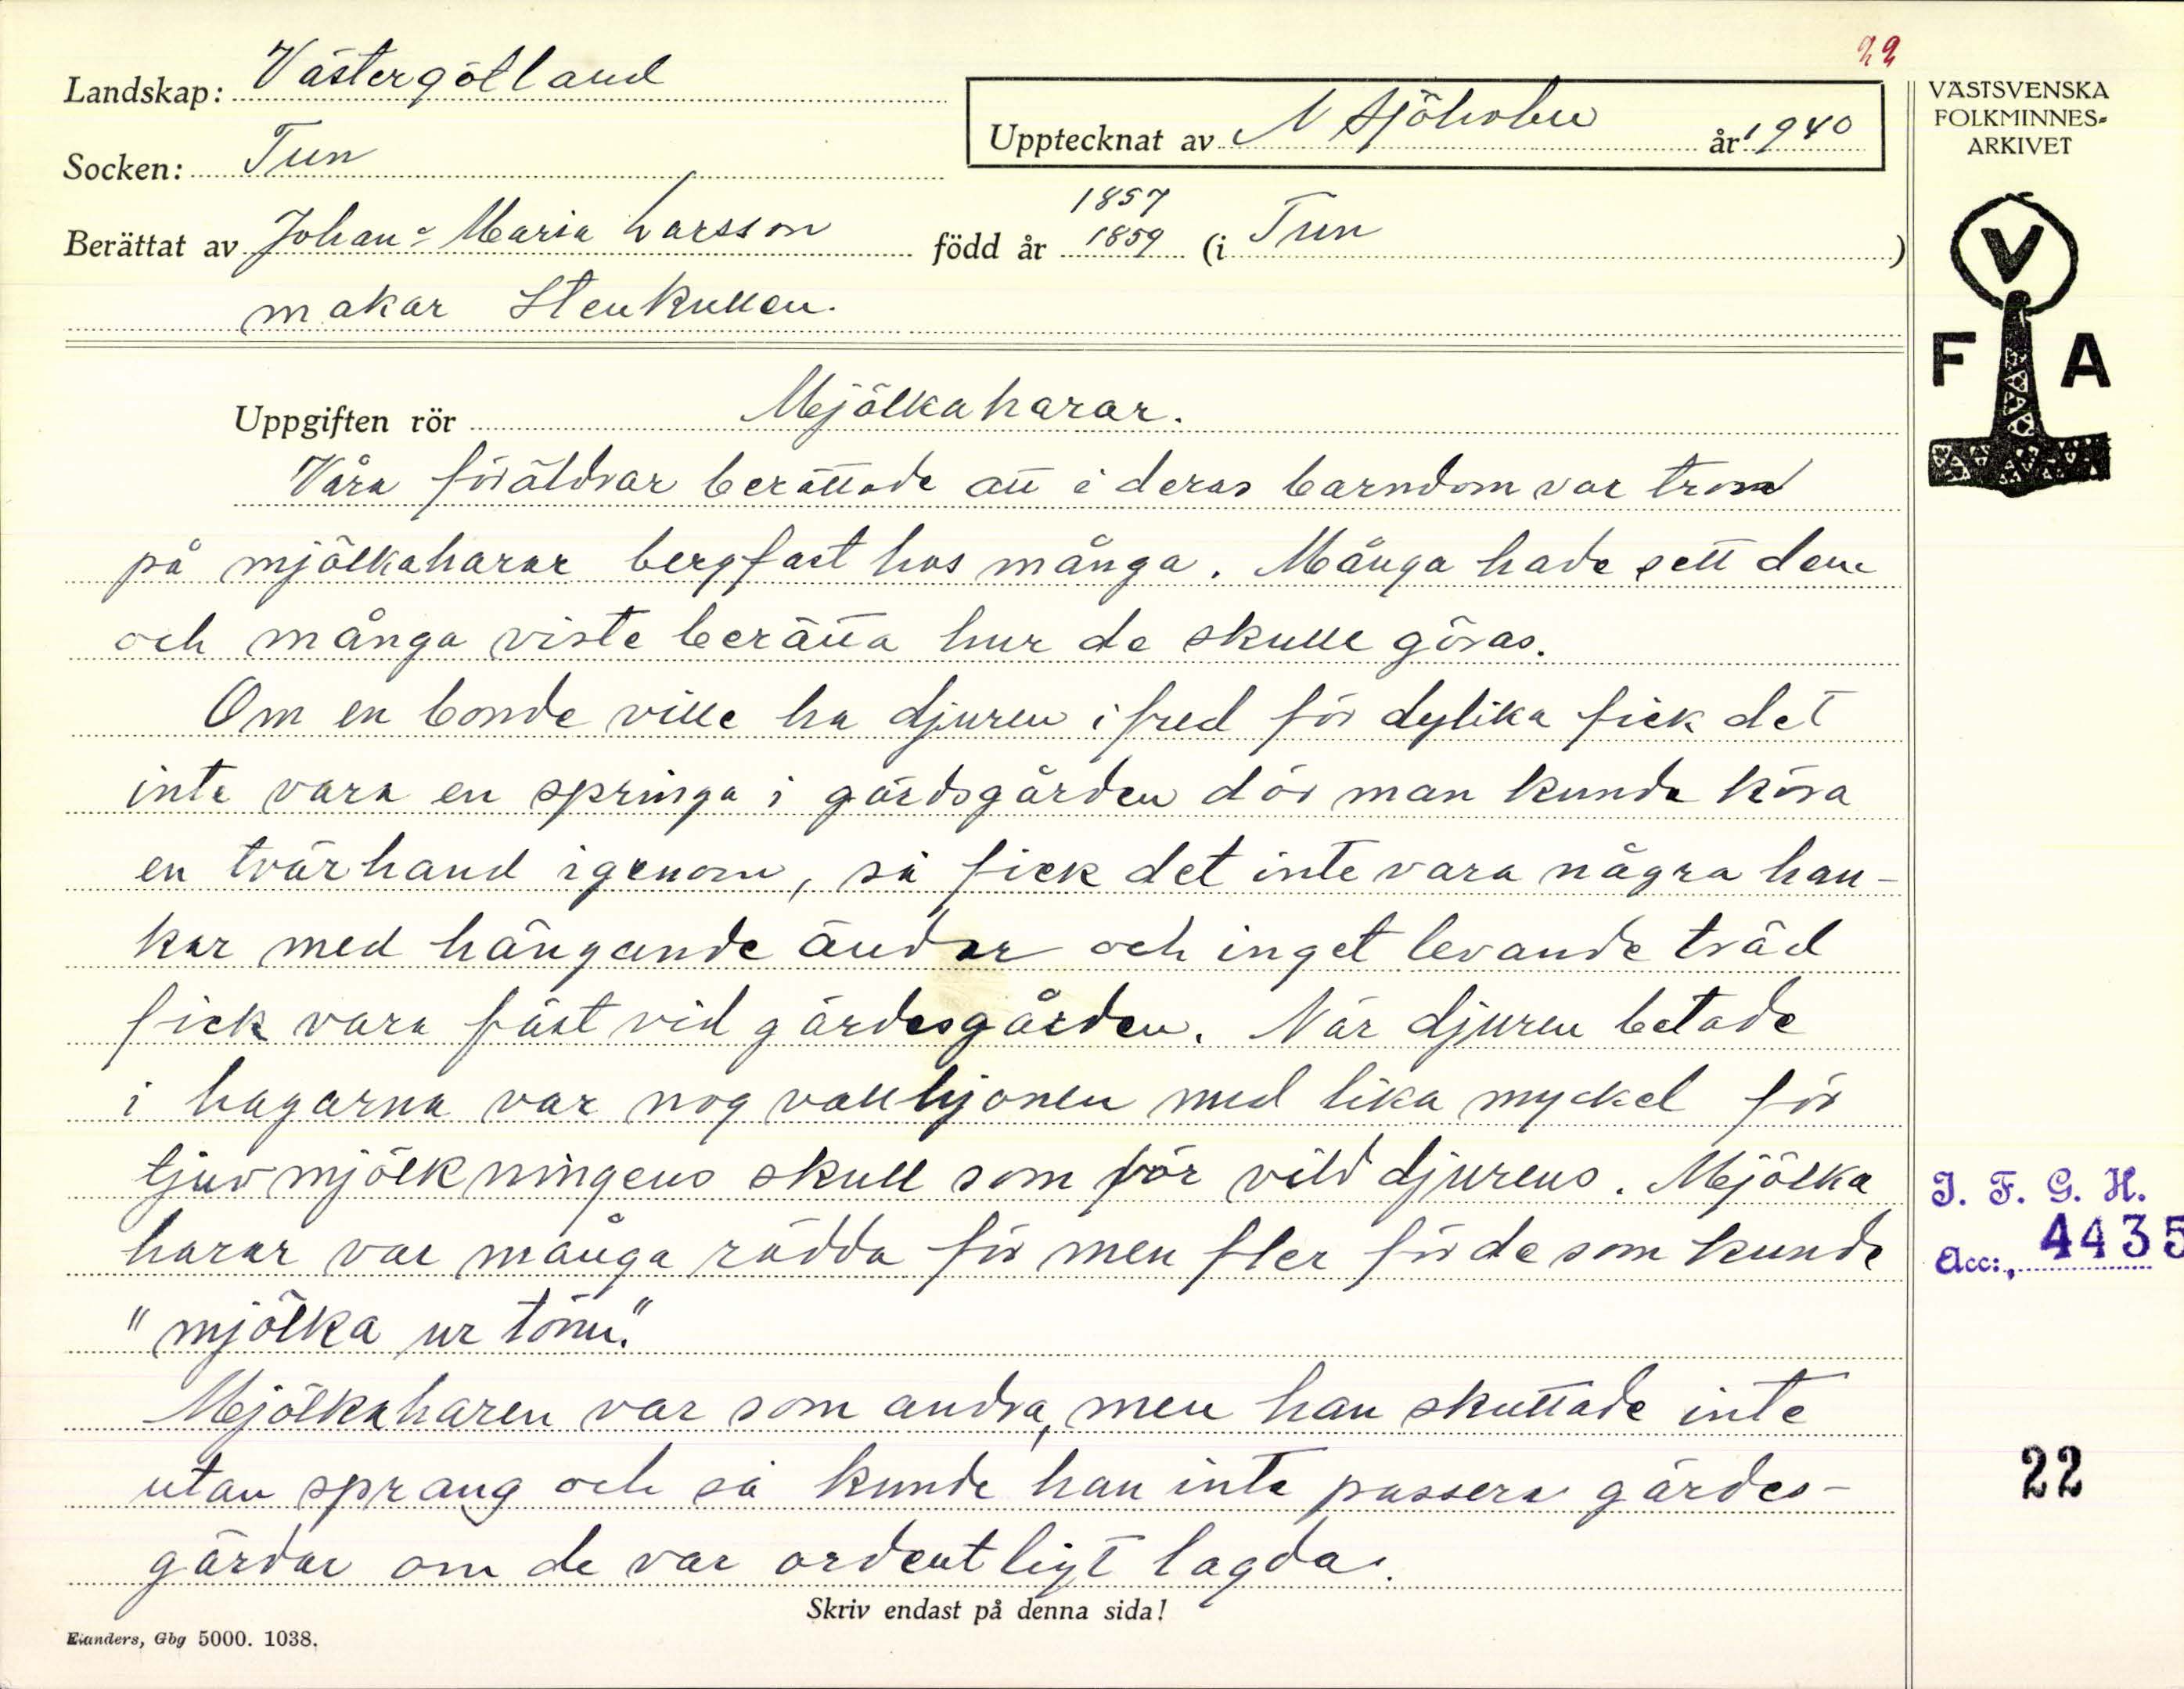 22
Landskap: Västergötland
Socken: Tun
Upptecknat av N Sjöholm år 1940
VÄSTSVENSKA
FOLKMINNES-
ARKIVET
1857
Berättat av Johan o Maria Larsson född år 1859 (i Tun )
makar Stenkullen.
V
F A
Uppgiften rör Mjölkaharar.
Våra föräldrar berättade att i deras barndom var tron
på mjölkaharar bergfast hos många. Många hade sett dem
och många viste berätta hur de skulle göras.
Om en bonde ville ha djuren i fred för dylika fick det
inte vara en springa i gärdsgården där man kunde köra
en tvärhand igenom, så fick det inte vara några han-
kar med hängande ändar och inget levande träd
fick vara fäst vid gärdesgården. När djuren betade
i hagarna var nog vallhjonen med lika myckel för
tjuvmjölkningens skull som för vilddjurens. Mjölka
harar var många rädda för men fler för de som kunde
"mjölka ur tömn".
Mjölkaharen var som andra, men han skuttade inte
utan sprang och så kunde han inte passera gärdes-
gårdar om de var ordentligt lagda.
Skriv endast på denna sida!
Elanders, Gbg 5000. 1038.
I. F. G. H.
Acc:, 4435
22